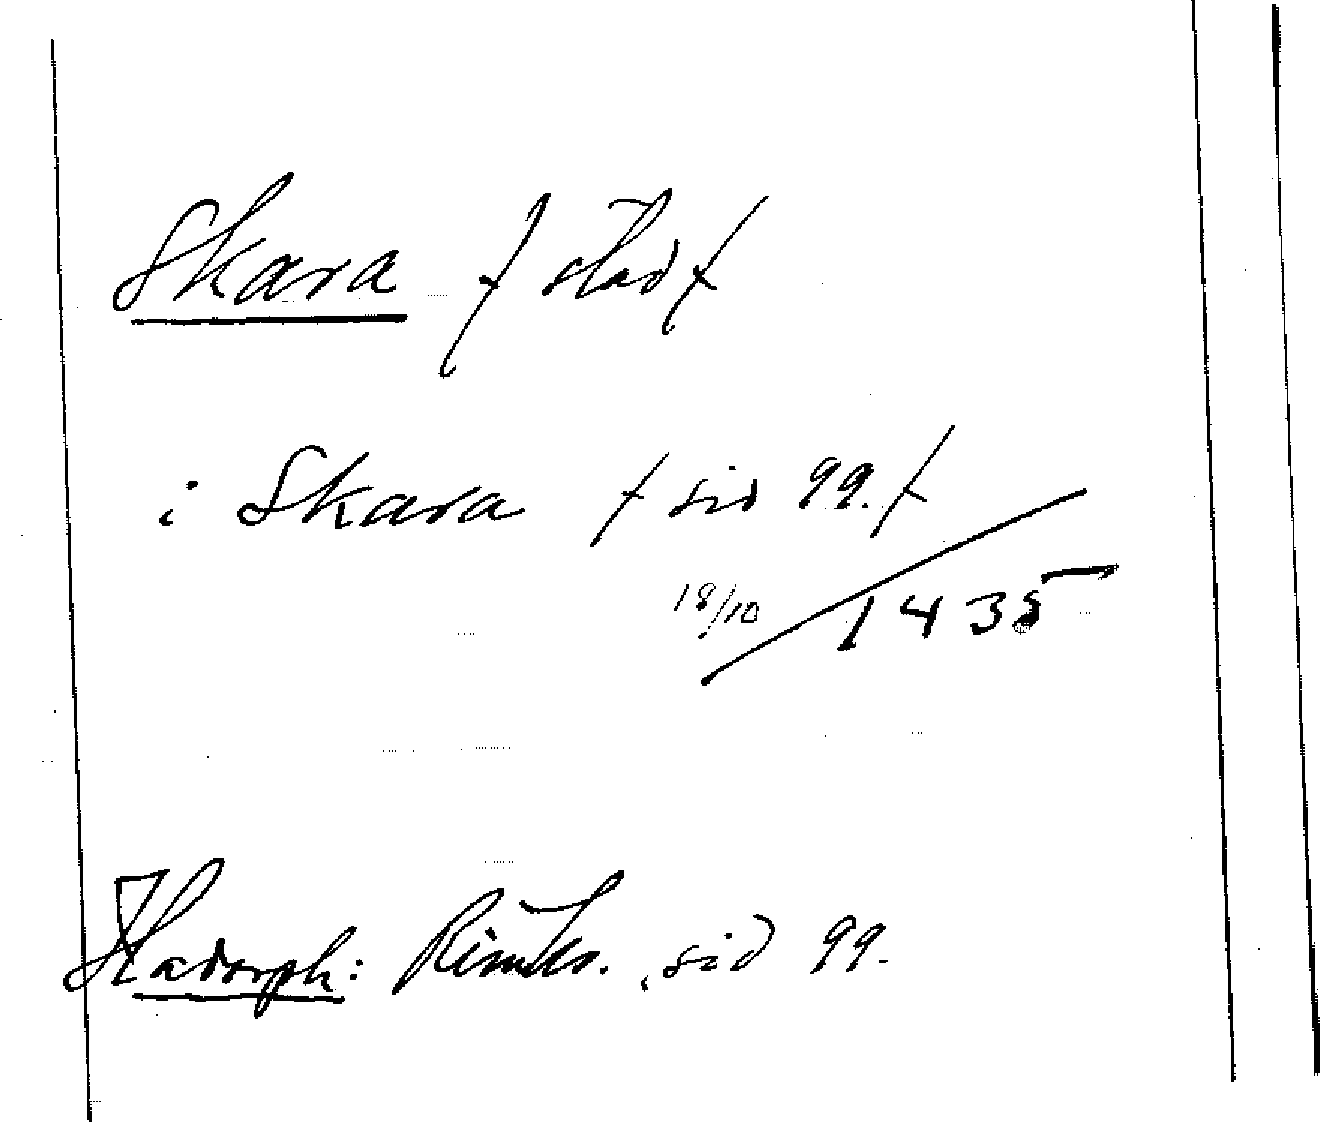 Skara / stad /
i Skara / sid 99. /
18/10 1435
Hadorph: Rimkr. sid 99.